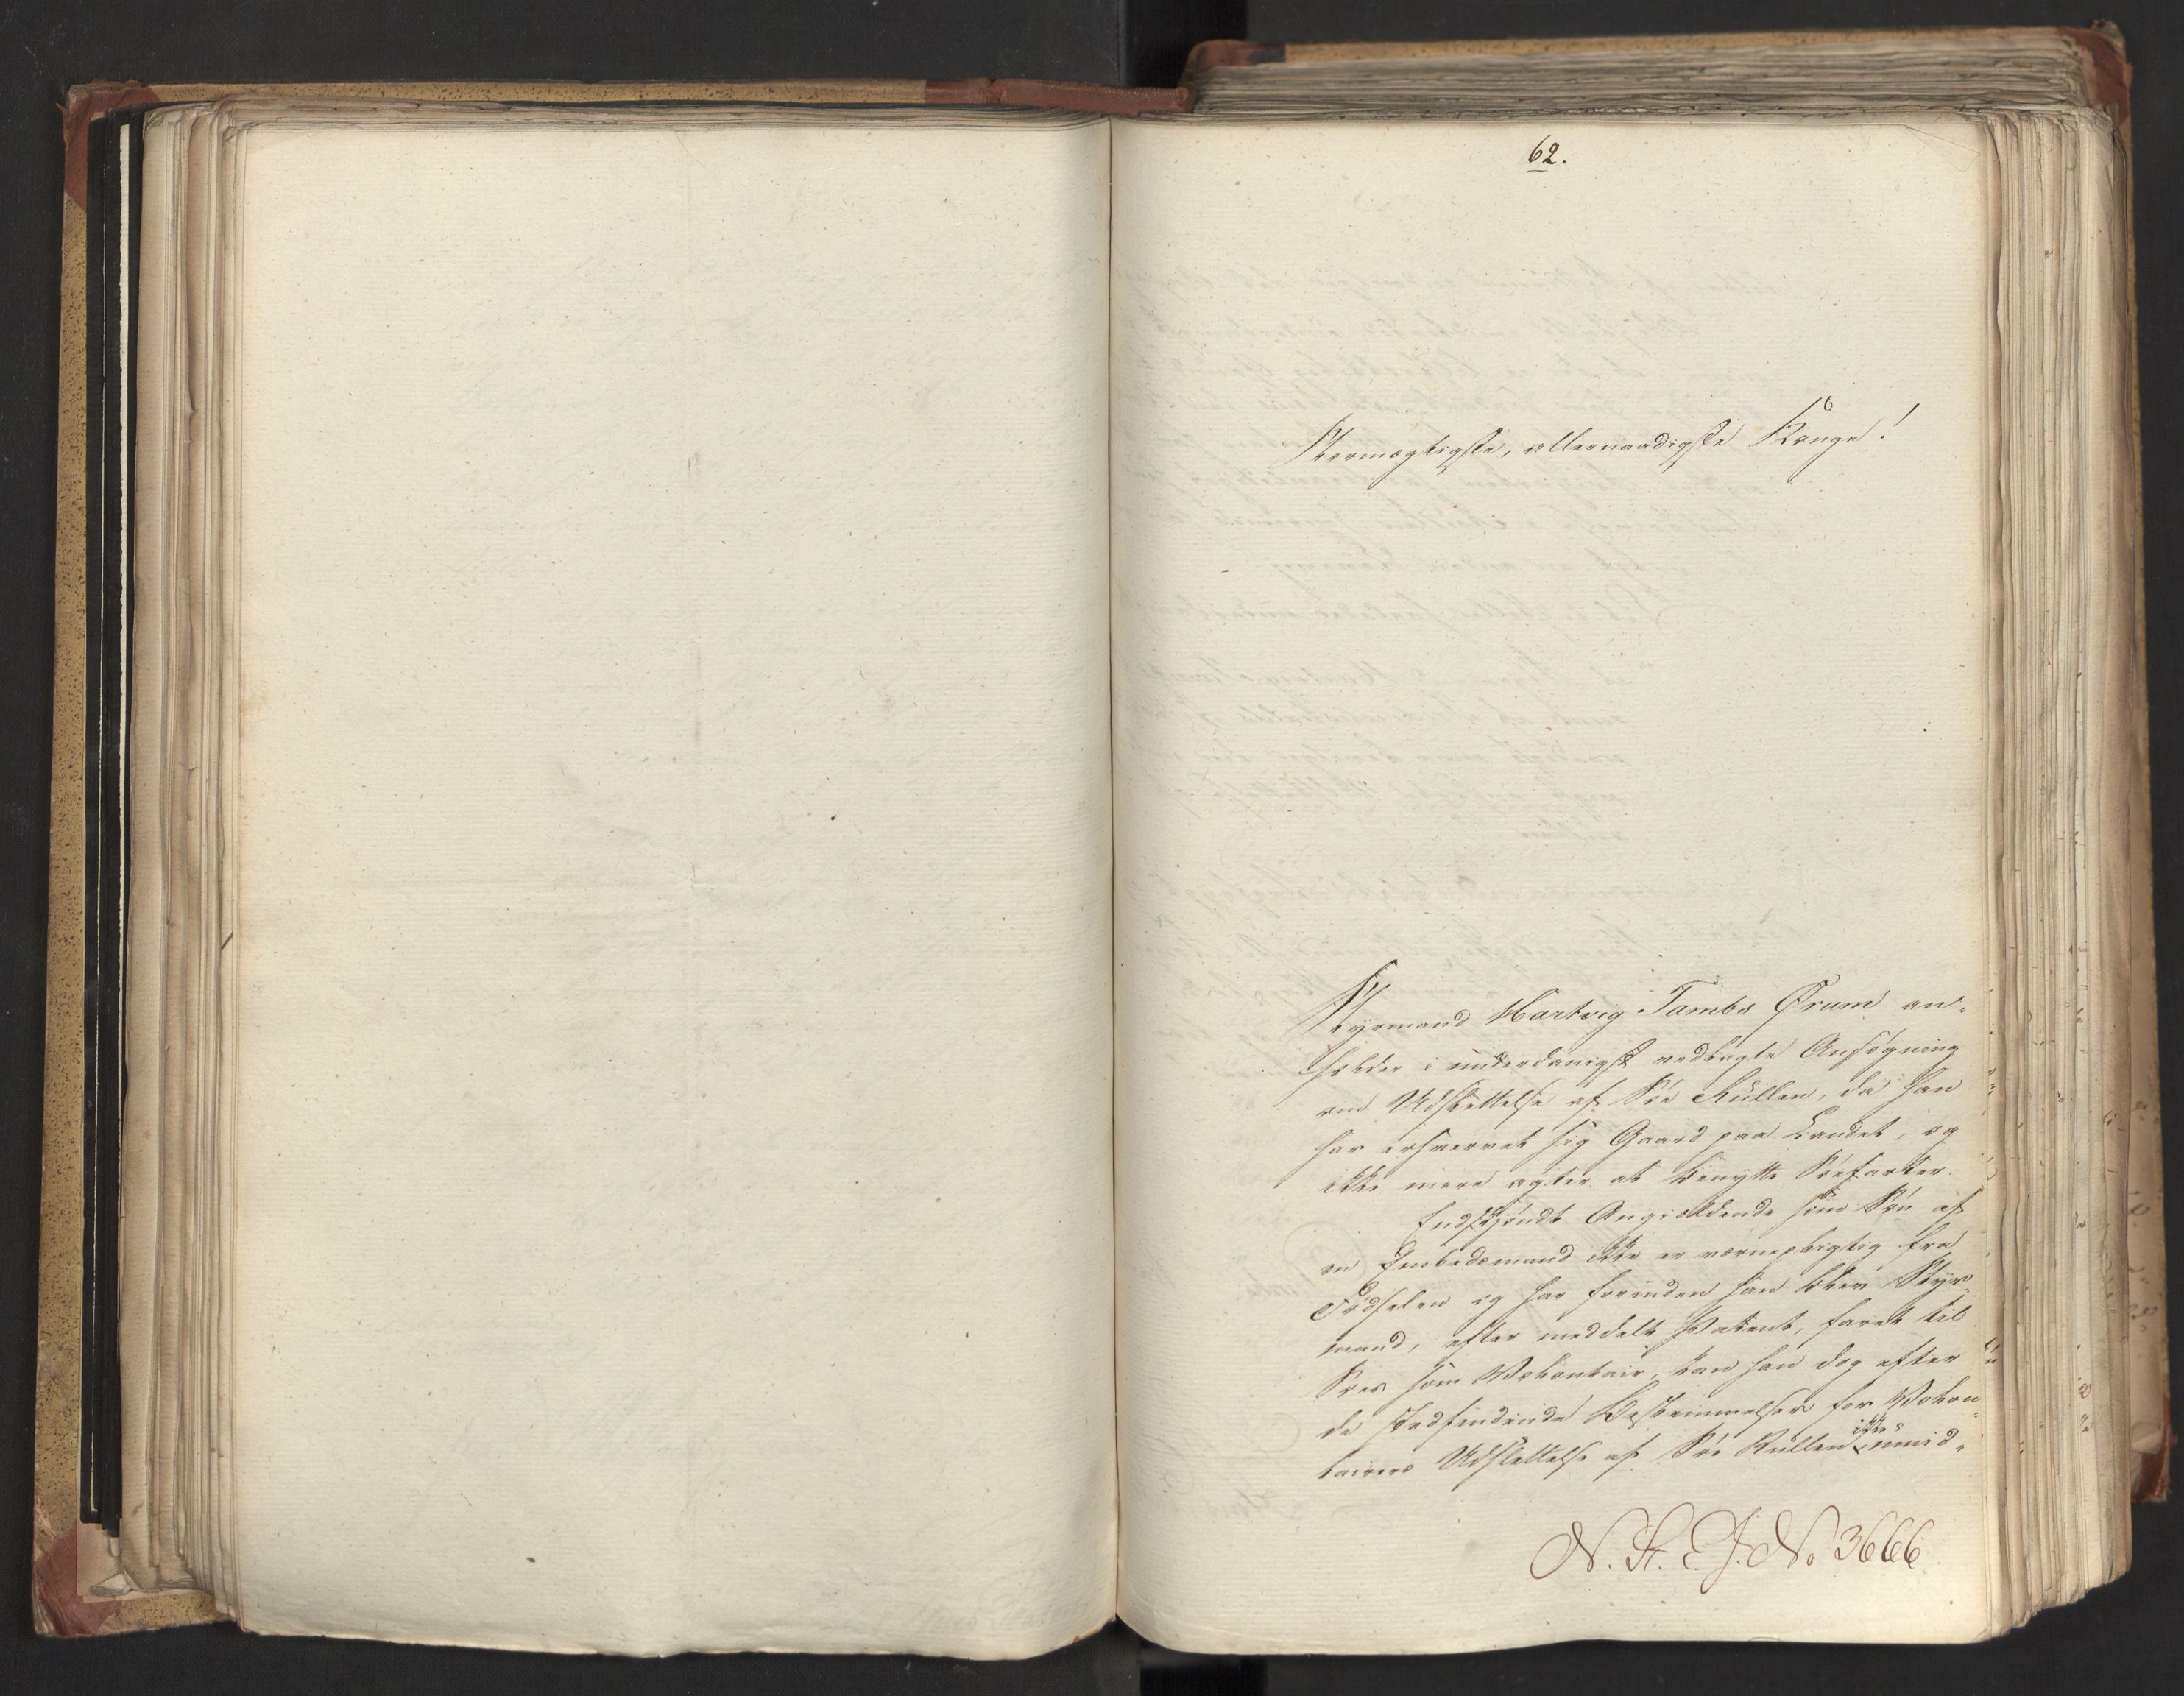 62.
Stormægtigste, allernaadigste Konge!
Styrmand Hartvig Tambs Ørum an-
holder i underdanigst vedlagte Ansøgning
om Udslettelse af Søe Rullen, da han
har erhvervet sig Gaard paa Landet, og
ikke mere agter at benytte Søefarten.
Endskjøndt Angjældende som Søn af
en Embedsmand ikke er værnepligtig fra
Fødselen og har forinden han blev Styr-
mand, efter meddelt Patent, faret til
Søes som Volontair, kan han dog efter
de stedfindende Bestemmelser for Volon-
tairers Udslettelse af Søe Rullen ikke umid-
N. St. E. J. No 3666